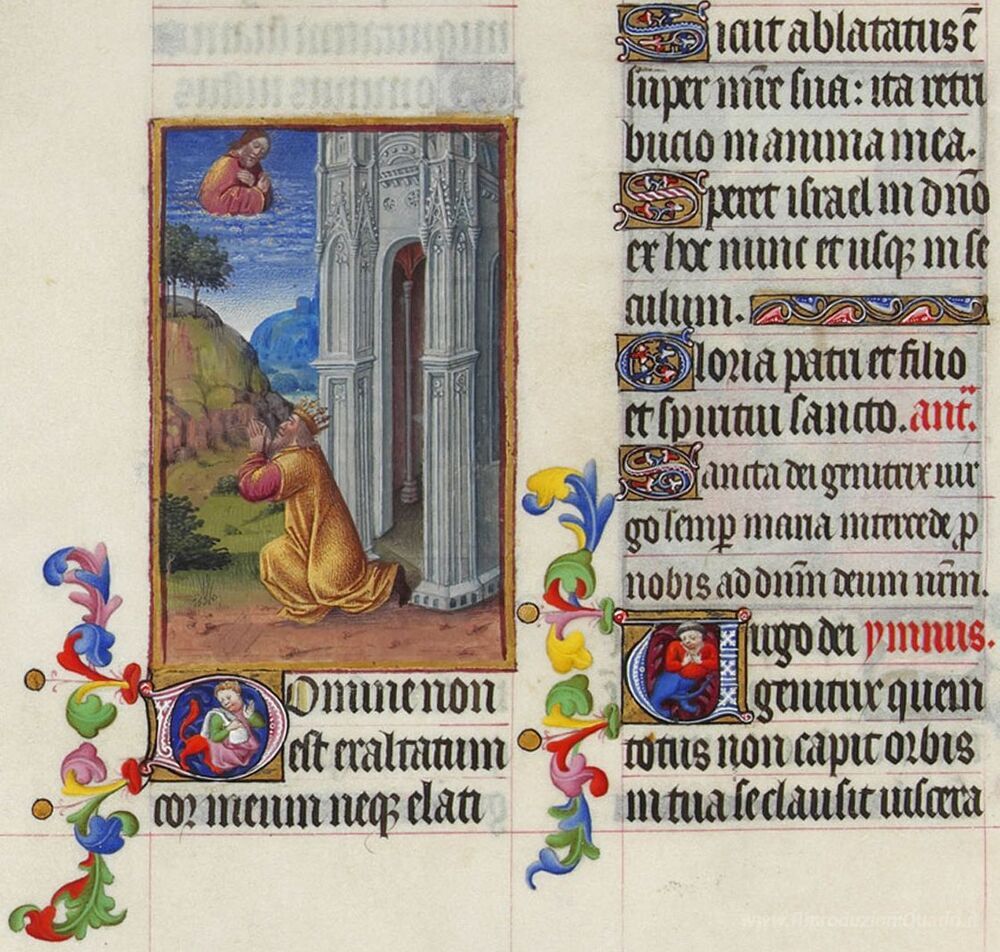 Domine non
est exaltatum
cor meum neqꝫ elati
Sicut ablatatus ē
sup̄er mr̄e sua: ita retri
bucio in anima mea.
Speret israel in dn̄o
ex hoc nunc et usqꝫ in se
culum.
Gloria patri et filio
et spiritui sancto. ant̄.
Sancta dei genitrix uir
go semp̄ maria intercede p̄
nobis ad dn̄m deum nr̄m.
Uirgo dei ymnus.
genitrix quem
totus non capit orbis
in tua se clausit uiscera